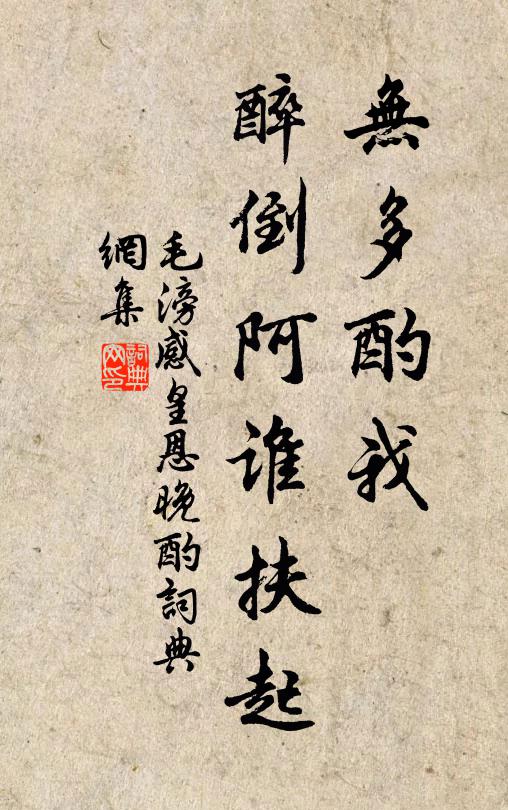 無多酌我
醉倒阿谁扶起
毛滂感皇恩晚酌詞典
網集
詞典
网印